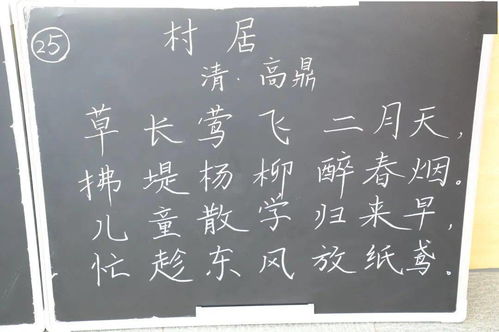 25
村居
清·高鼎
草长莺飞二月天，
拂堤杨柳醉春烟。
儿童散学归来早，
忙趁东风放纸鸢。